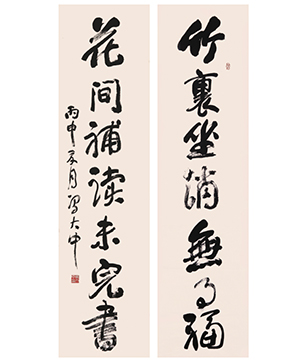 竹裏坐消無事福
花間補读未完書
丙申冬月冯大中